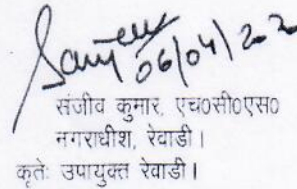 06/04/202
संजीव कुमार, एच०सी०एस०
नगराधीश, रेवाडी।
कृतेः उपायुक्त रेवाडी।